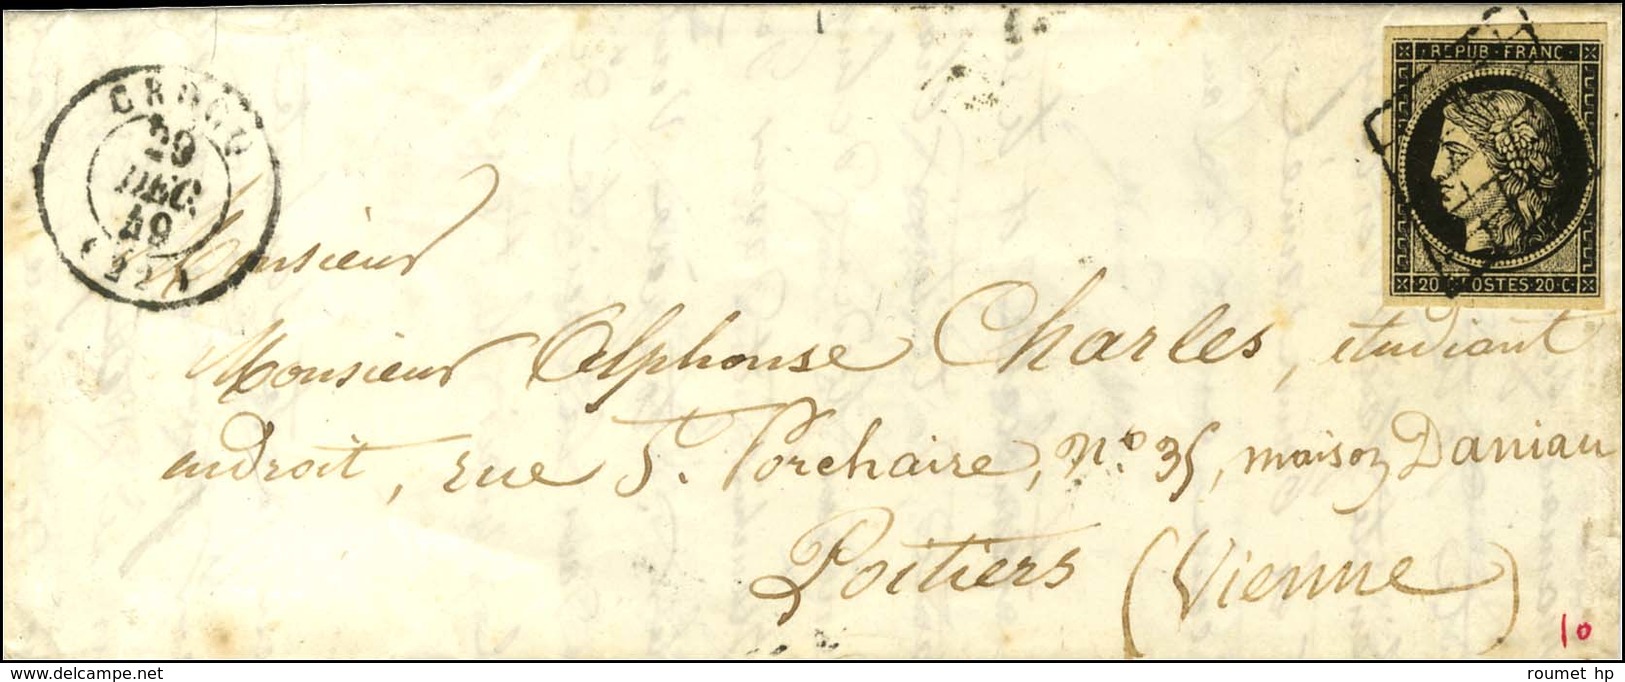 CROCQ
29
DEC.
49
(22)
REPUB. FRANC.
20 C. POSTES 20 C.
Monsieur
Monsieur Alphonse Charles, étudiant
en droit, rue St. Porchaire, N.° 35, maison Daniau
Poitiers (Vienne)
10
www.delcampe.net
roumet hp